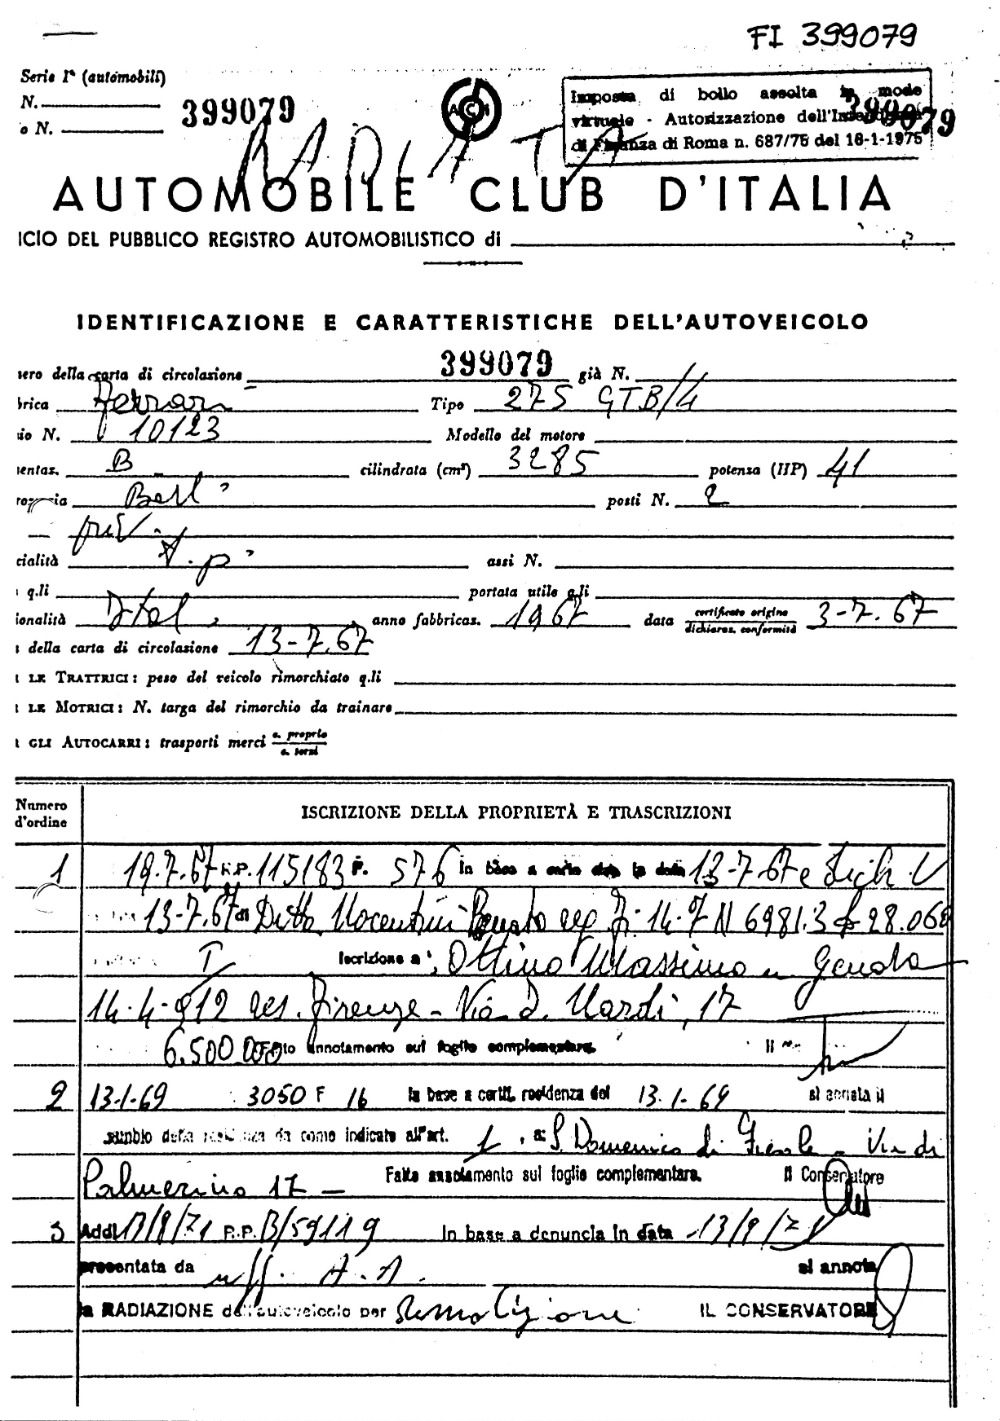 FI 399079
Serie Iª (automobili)
N.
o N.
399079
ACI
Imposta di bollo assolta in modo
virtuale - Autorizzazione dell'Intendenza
di Finanza di Roma n. 687/75 del 18-1-1975
399079
RADIATA
AUTOMOBILE CLUB D'ITALIA
ICIO DEL PUBBLICO REGISTRO AUTOMOBILISTICO di
IDENTIFICAZIONE E CARATTERISTICHE DELL'AUTOVEICOLO
nero della carta di circolazione 399079 già N.
brica Ferrari Tipo 275 GTB/4
io N. 10123 Modello del motore
entaz. B cilindrata (cm³) 3285 potenza (HP) 41
rozzeria Berl. posti N. 2
priv.
cialità t.p. assi N.
q.li portata utile q.li
ionalità Ital. anno fabbricaz. 1967 data certificato origine dichiaraz. conformità 3-7.67
della carta di circolazione 13-7.67
LE TRATTRICI: peso del veicolo rimorchiato q.li
LE MOTRICI: N. targa del rimorchio da trainare
GLI AUTOCARRI: trasporti merci c. proprio c. terzi
Numero d'ordine ISCRIZIONE DELLA PROPRIETÀ E TRASCRIZIONI
1 19.7.67 R.P. 115183 F. 576 In base a data 13-7.67 e Dich. V
13-7.67 di Ditta Nocentini Renato reg. Fi 14-7 N 6981.3 £ 28.060
Iscrizione a Ottino Massimo n. Genola
14-4-912 res. Firenze - Via D. Nardi, 17
6.500.000 annotamento sul foglio complementare. Il
2 13-1-69 3050 F 16 In base a certif. residenza del 13-1-69 si annota il
cambio della residenza da come indicato all'art. 1, a: S. Domenico di Fiesole - Via di
Palmerino 17 - Fatto annotamento sul foglio complementare. Il Conservatore
3 Addì 17/9/71 R.P. B/59119 In base a denuncia in data 13/9/71
presentata da uff. A.A. si annota
la RADIAZIONE dell'autoveicolo per demolizione IL CONSERVATORE